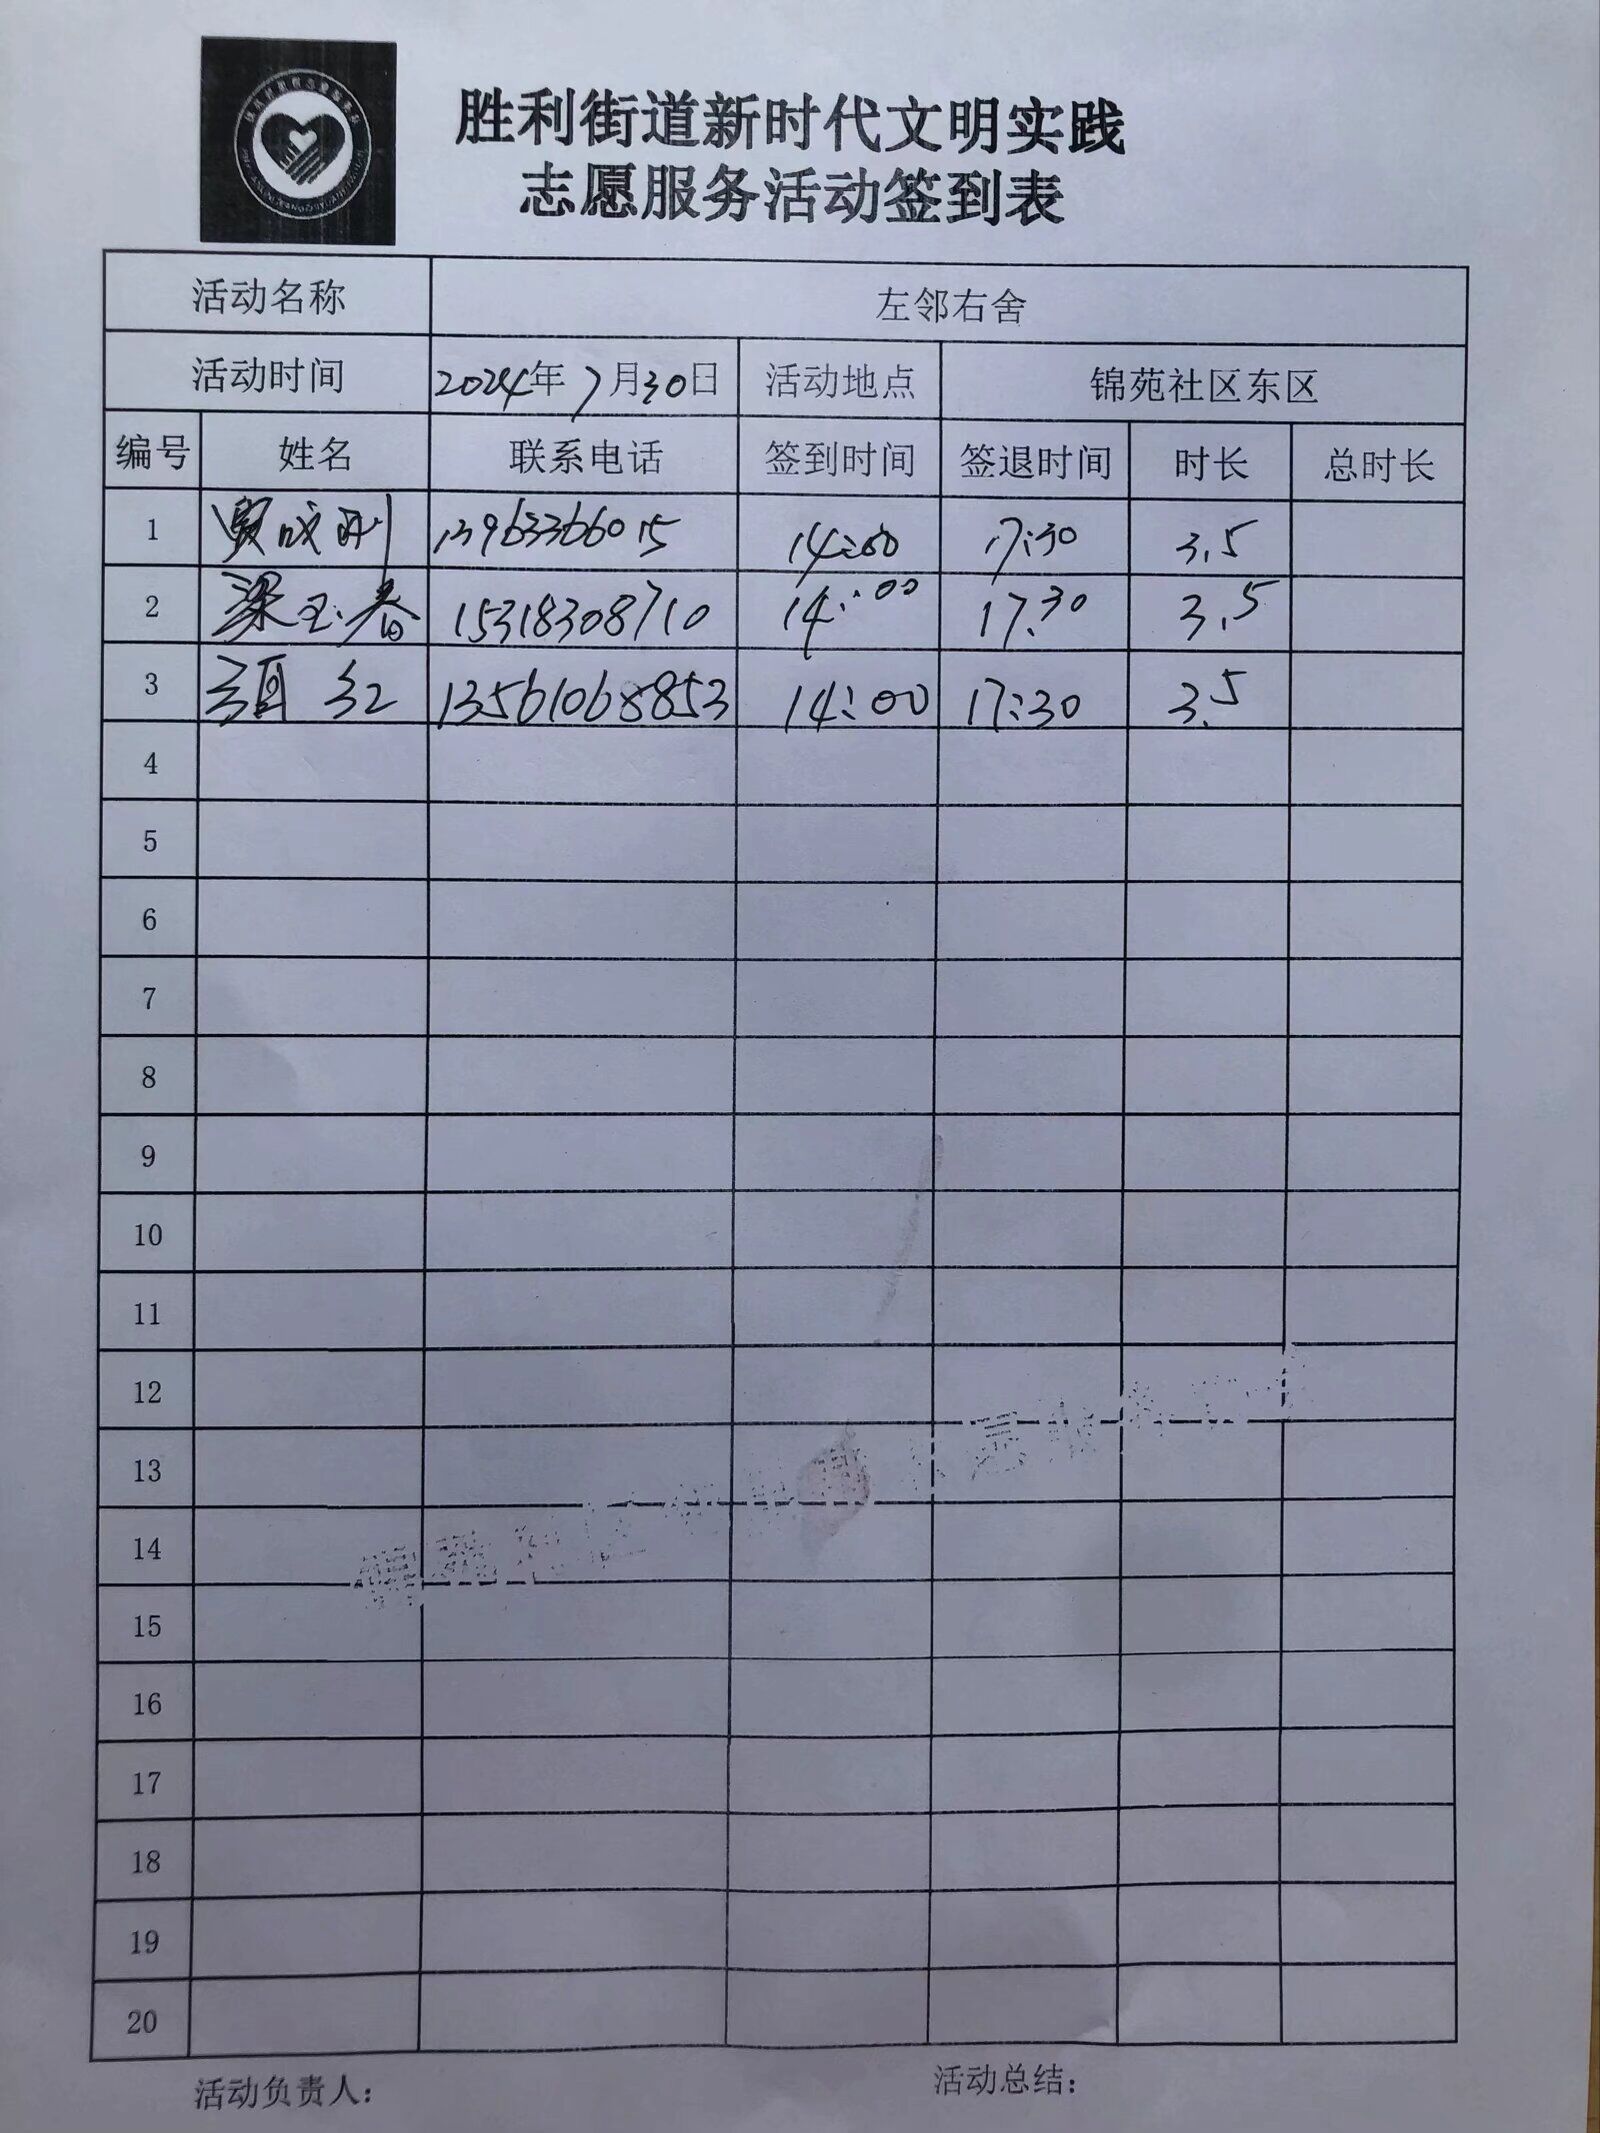 胜利街道新时代文明实践
志愿服务活动签到表
活动名称 左邻右舍
活动时间 2024年7月30日 活动地点 锦苑社区东区
编号 姓名 联系电话 签到时间 签退时间 时长 总时长
1 贾成利 13963366015 14:00 17:30 3.5
2 梁玉春 15318308710 14:00 17:30 3.5
3 红 13561068853 14:00 17:30 3.5
4
5
6
7
8
9
10
11
12
13
14
15
16
17
18
19
20
活动负责人: 活动总结: